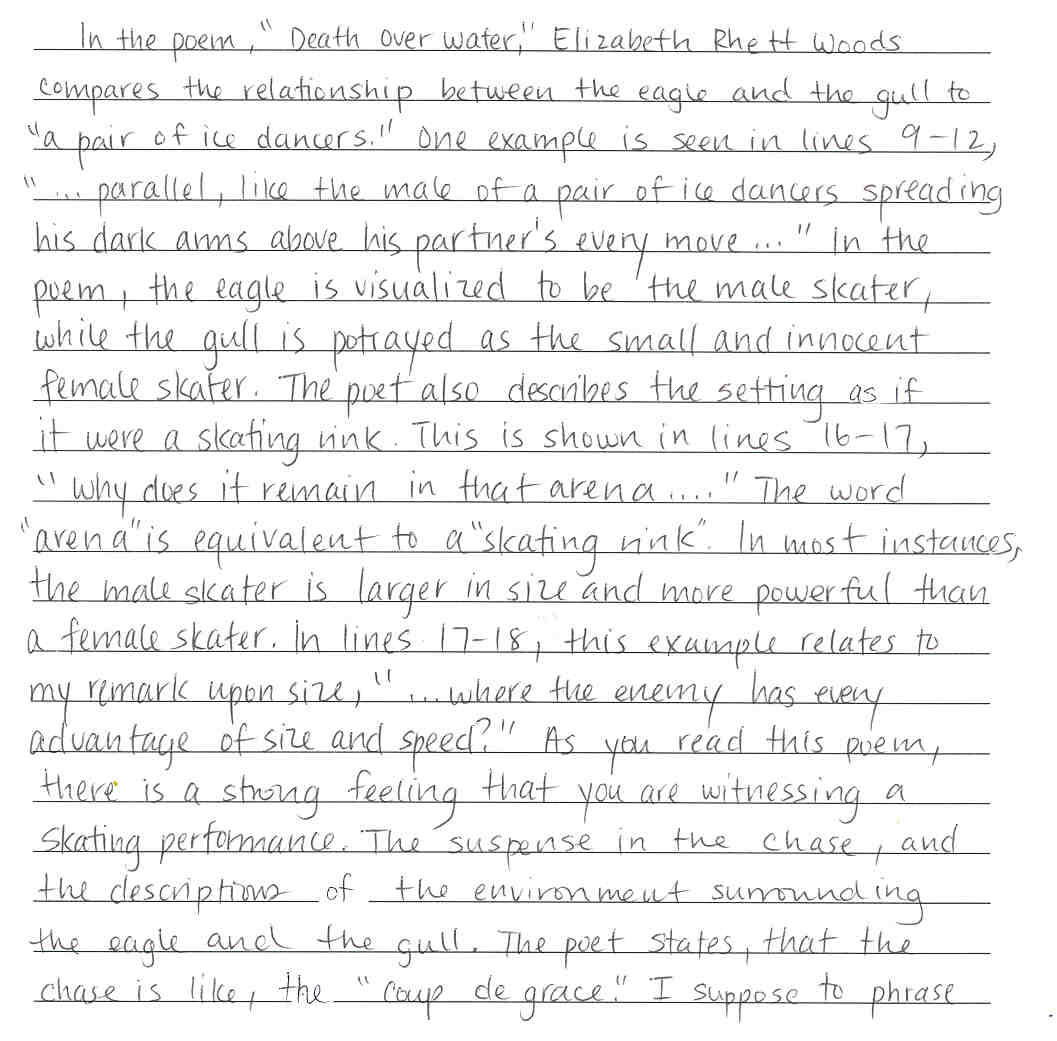 In the poem, "Death Over Water," Elizabeth Rhett Woods
compares the relationship between the eagle and the gull to
"a pair of ice dancers." One example is seen in lines 9-12,
"... parallel, like the male of a pair of ice dancers spreading
his dark arms above his partner's every move ..." In the
poem, the eagle is visualized to be the male skater,
while the gull is potrayed as the small and innocent
female skater. The poet also describes the setting as if
it were a skating rink. This is shown in lines 16-17,
"Why does it remain in that arena...." The word
"arena" is equivalent to a "skating rink". In most instances,
the male skater is larger in size and more powerful than
a female skater. In lines 17-18, this example relates to
my remark upon size, "...where the enemy has every
advantage of size and speed?" As you read this poem,
there is a strong feeling that you are witnessing a
skating performance. The suspense in the chase, and
the descriptions of the environment surrounding
the eagle and the gull. The poet states, that the
chase is like, the "coup de grace." I suppose to phrase